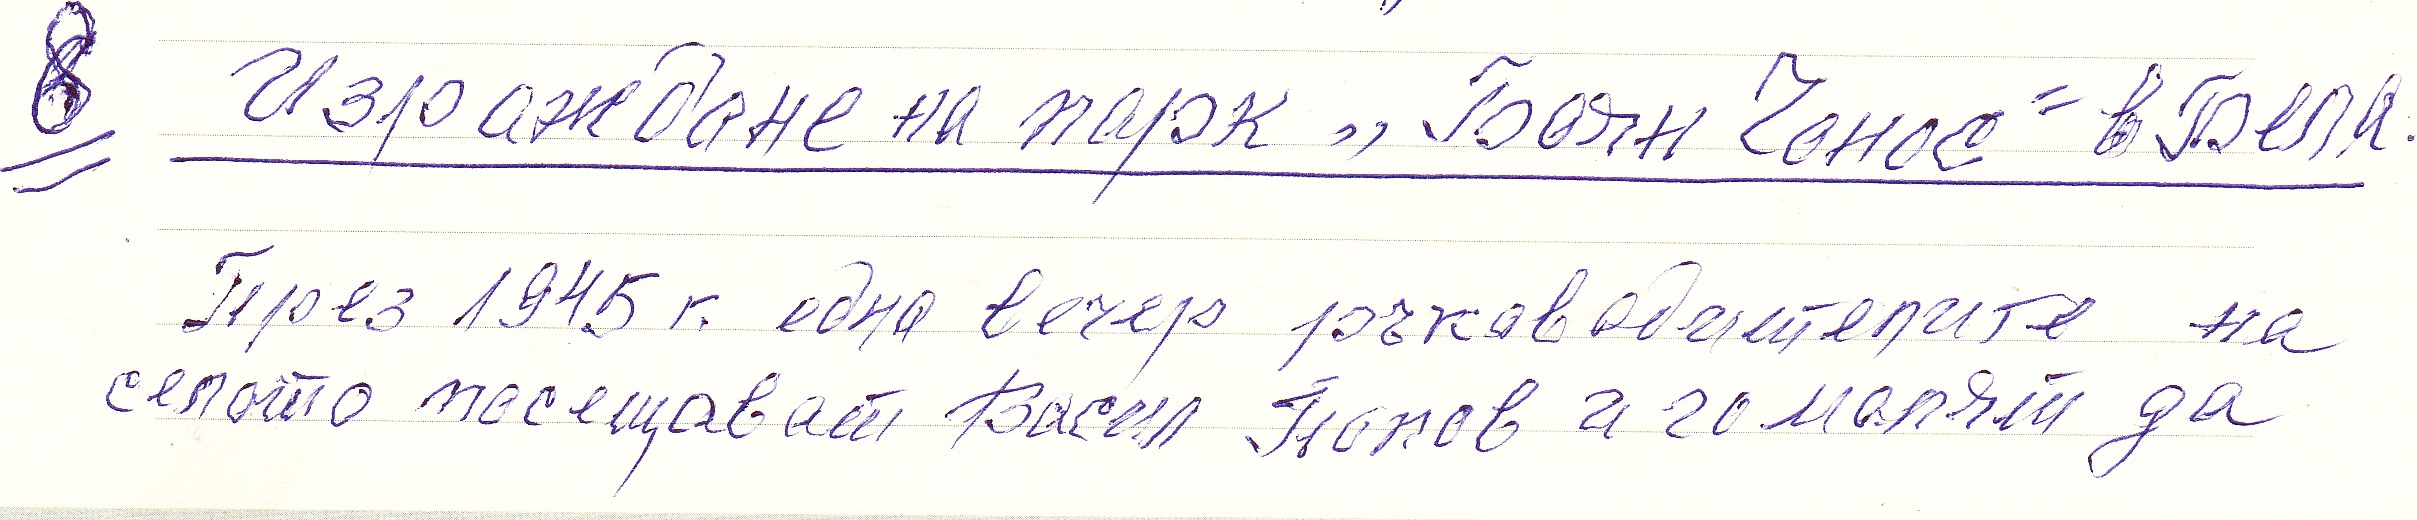 8 Изграждане на парк „Боян Чонос“ в Бела.
През 1945 г. една вечер ръководителите на
селото посещават Васил Попов и го молят да